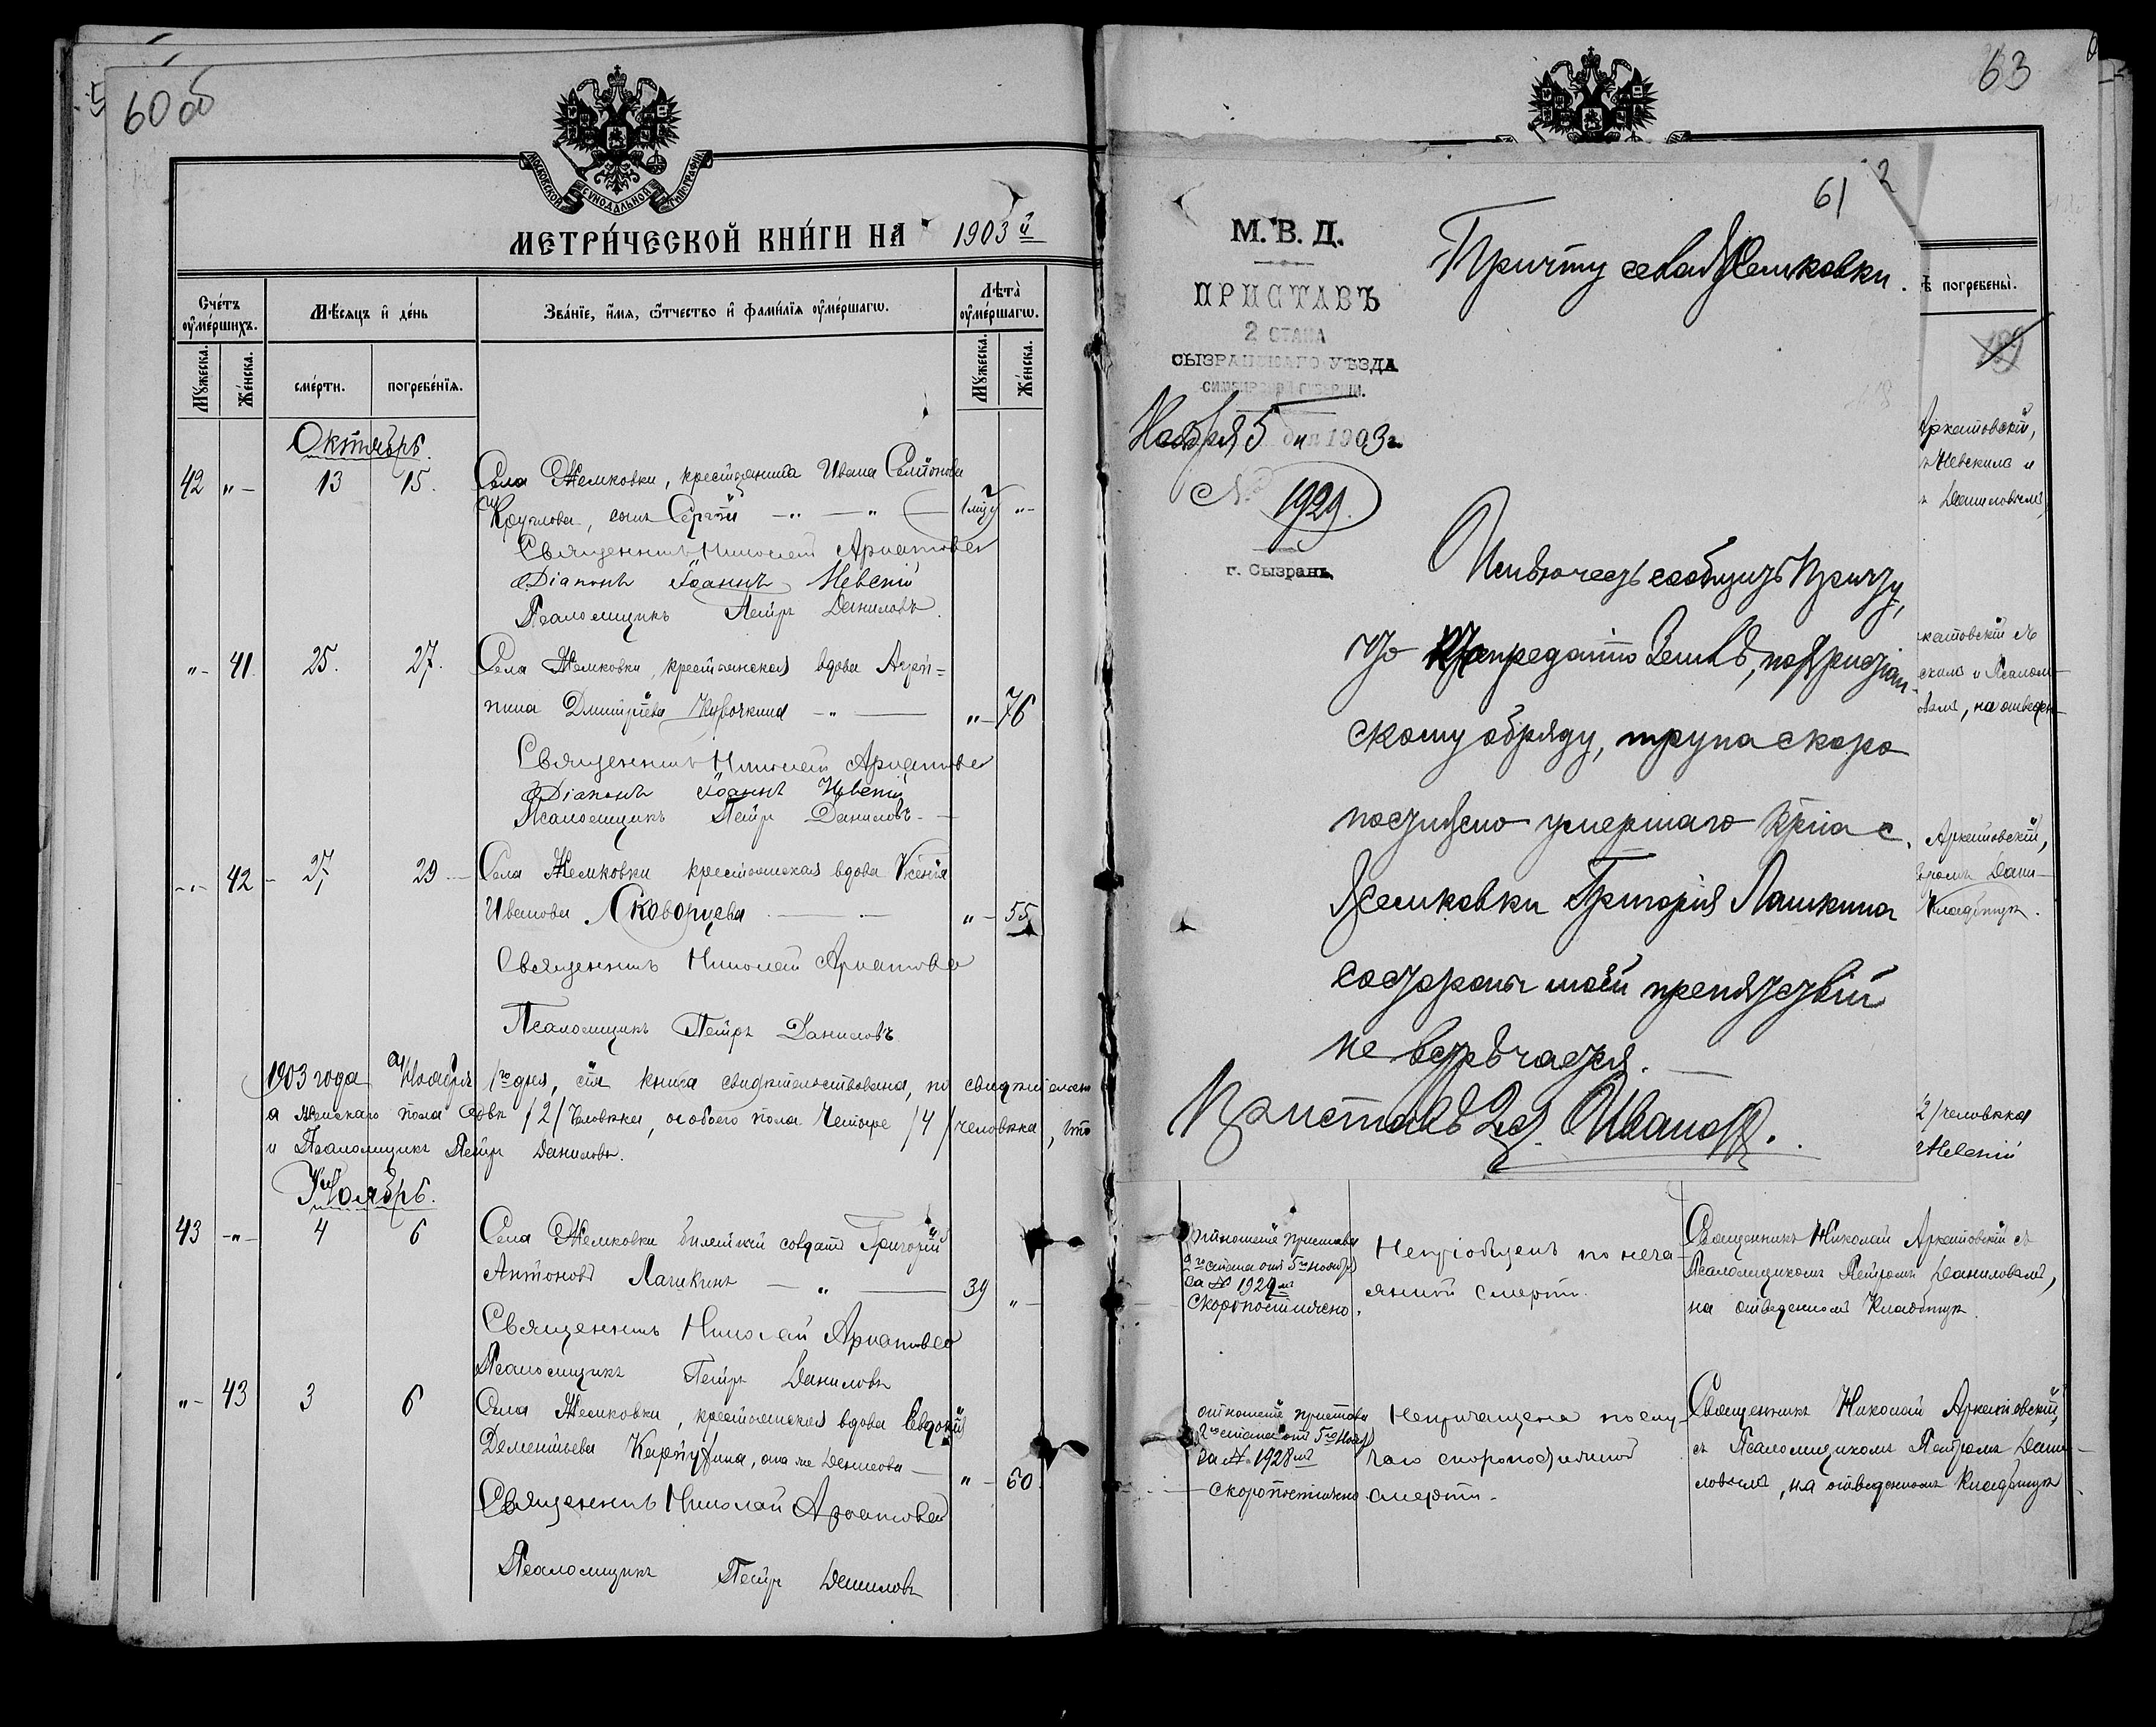 60 об
МОСКОВСКОЙ СѴНОДАЛЬНОЙ ТИПОГРАФІИ
МЕТРИ́ЧЕСКОЙ КНИ́ГИ НА 1903й
Сче́тъ оу҆ме́ршихъ.
Мѣ́сяцъ и҆ де́нь
Зва́нїе, и҆́мя, ѻ҆́тчество и҆ фами́лїя оу҆ме́ршагѡ.
Лѣ́та оу҆ме́ршагѡ.
Мꙋ́жеска.
Же́нска.
сме́рти.
погребе́нїя.
Мꙋ́жеска.
Же́нска.
Октябрь.
42 „ — 13 15. Села Жемковки, крестьянина Ивана Семіонова
Круглова, сынъ Сергій — „ — „ — 1 мцъ „ —
Священникъ Николай Аркатовскій
Діаконъ Іоаннъ Невскій
Псаломщикъ Петръ Даниловъ.
„ — 41. 25. 27. Села Жемковки, крестьянская вдова Агрип=
пина Димитріева Курочкина — „ — „ — 76
Священникъ Николай Аркатовскій
Діаконъ Іоаннъ Невскій
Псаломщикъ Петръ Даниловъ —
— „ — 42 — 27. 29 — Села Жемковки крестьянская вдова Ксенія
Иванова Скворцова — „ — 55
Священникъ Николай Аркатовскій
Псаломщикъ Петръ Даниловъ
1903 года Ноября 1го дня, сія книга свидѣтельствована, по свидѣтельст
а женскаго пола двѣ /2/ человѣка, обоего пола четыре /4/ человѣка, что
и Псаломщикъ Петръ Даниловъ.
Ноябрь.
43 — „ — 4 6 Села Жемковки билетный солдатъ Григорій
Антоновъ Лашкинъ — „ — 39 „ —
Священникъ Николай Аркатовскій
Псаломщикъ Петръ Даниловъ
„ — 43 3 6 Села Жемковки, крестьянская вдова Евдокія
Дементьева Карпухина, она же Денисова — „ — 60.
Священникъ Николай Аркатовскій
Псаломщикъ Петръ Даниловъ
63
61 2
М. В. Д.
ПРИСТАВЪ
2 СТАНА
СЫЗРАНСКАГО УѢЗДА
СИМБИРСКОЙ ГУБЕРНІИ.
Ноября 5 дня 1903 г.
№ 1929.
г. Сызрань.
Причту села Жемковки.
Имѣю честь сообщить Причту,
что къ преданію землѣ, по христіан-
скому обряду, трупа скоро
постижно умершаго кр-на с.
Жемковки Григорія Лашкина
со стороны моей препятствій
не встрѣчается. —
Приставъ 2 ст. Иванов.
ѣ̀ погребены̀.
Аркатовскій,
ъ Невскимъ и
ъ Даниловымъ
катовскій съ
скимъ и Псалом-
овымъ, на отведен-
Аркатовскій,
тромъ Дани-
Кладбищѣ.
2/ человѣка
Невскій
отношеніе Пристава
2го стана отъ 5го ноября
за № 1929мъ
Скоропостижно.
Непріобщенъ по неча-
янной смерти.
Священникъ Николай Аркатовскій съ
Псаломщикомъ Петромъ Даниловымъ,
на отведенномъ Кладбищѣ.
отношеніе Пристава
2го стана отъ 5го Ноября
за № 1928мъ
— скоропостижно
Непричащена по слу-
чаю скоропостижной
смерти.
Священникъ Николай Аркатовскій,
съ Псаломщикомъ Петромъ Дани-
ловымъ, на отведенномъ Кладбищѣ